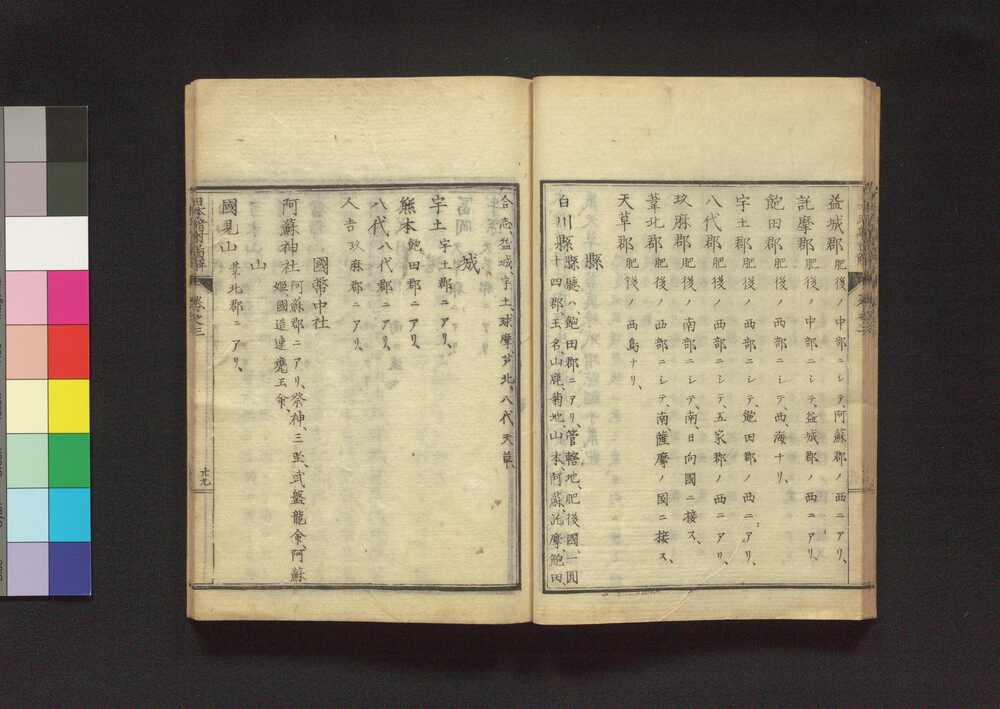 益城郡肥後ノ中部ニシテ、阿蘇郡ノ西ニアリ、
託摩郡肥後ノ中部ニシテ、益城郡ノ西ニアリ、
飽田郡肥後ノ西部ニシテ、西、海ナリ、
宇土郡肥後ノ西部ニシテ、飽田郡ノ西ニアリ、
八代郡肥後ノ西部ニシテ、五家郡ノ西ニアリ、
玖麻郡肥後ノ南部ニシテ、南、日向國ニ接ス、
葦北郡肥後ノ西部ニシテ、南、薩摩ノ国ニ接ス、
天草郡肥後ノ西島ナリ、
縣
白川縣縣廳ハ飽田郡ニアリ、管轄地、肥後國一圓
十四郡、玉名、山鹿、菊地山本、阿蘇、託摩、飽田、
合志、益城、宇土、球摩、芦北、八代、天草、
城
宇土宇土郡ニアリ、
熊本飽田郡ニアリ、
八代八代郡ニアリ、
人吉玖麻郡ニアリ、
國幣中社
阿蘇神社阿蘇郡ニアリ、祭神、三坐、武磐龍命、阿蘇
姫、國造速瓶玉命、
山
國見山葦北郡ニアリ、
卷之三
廿九